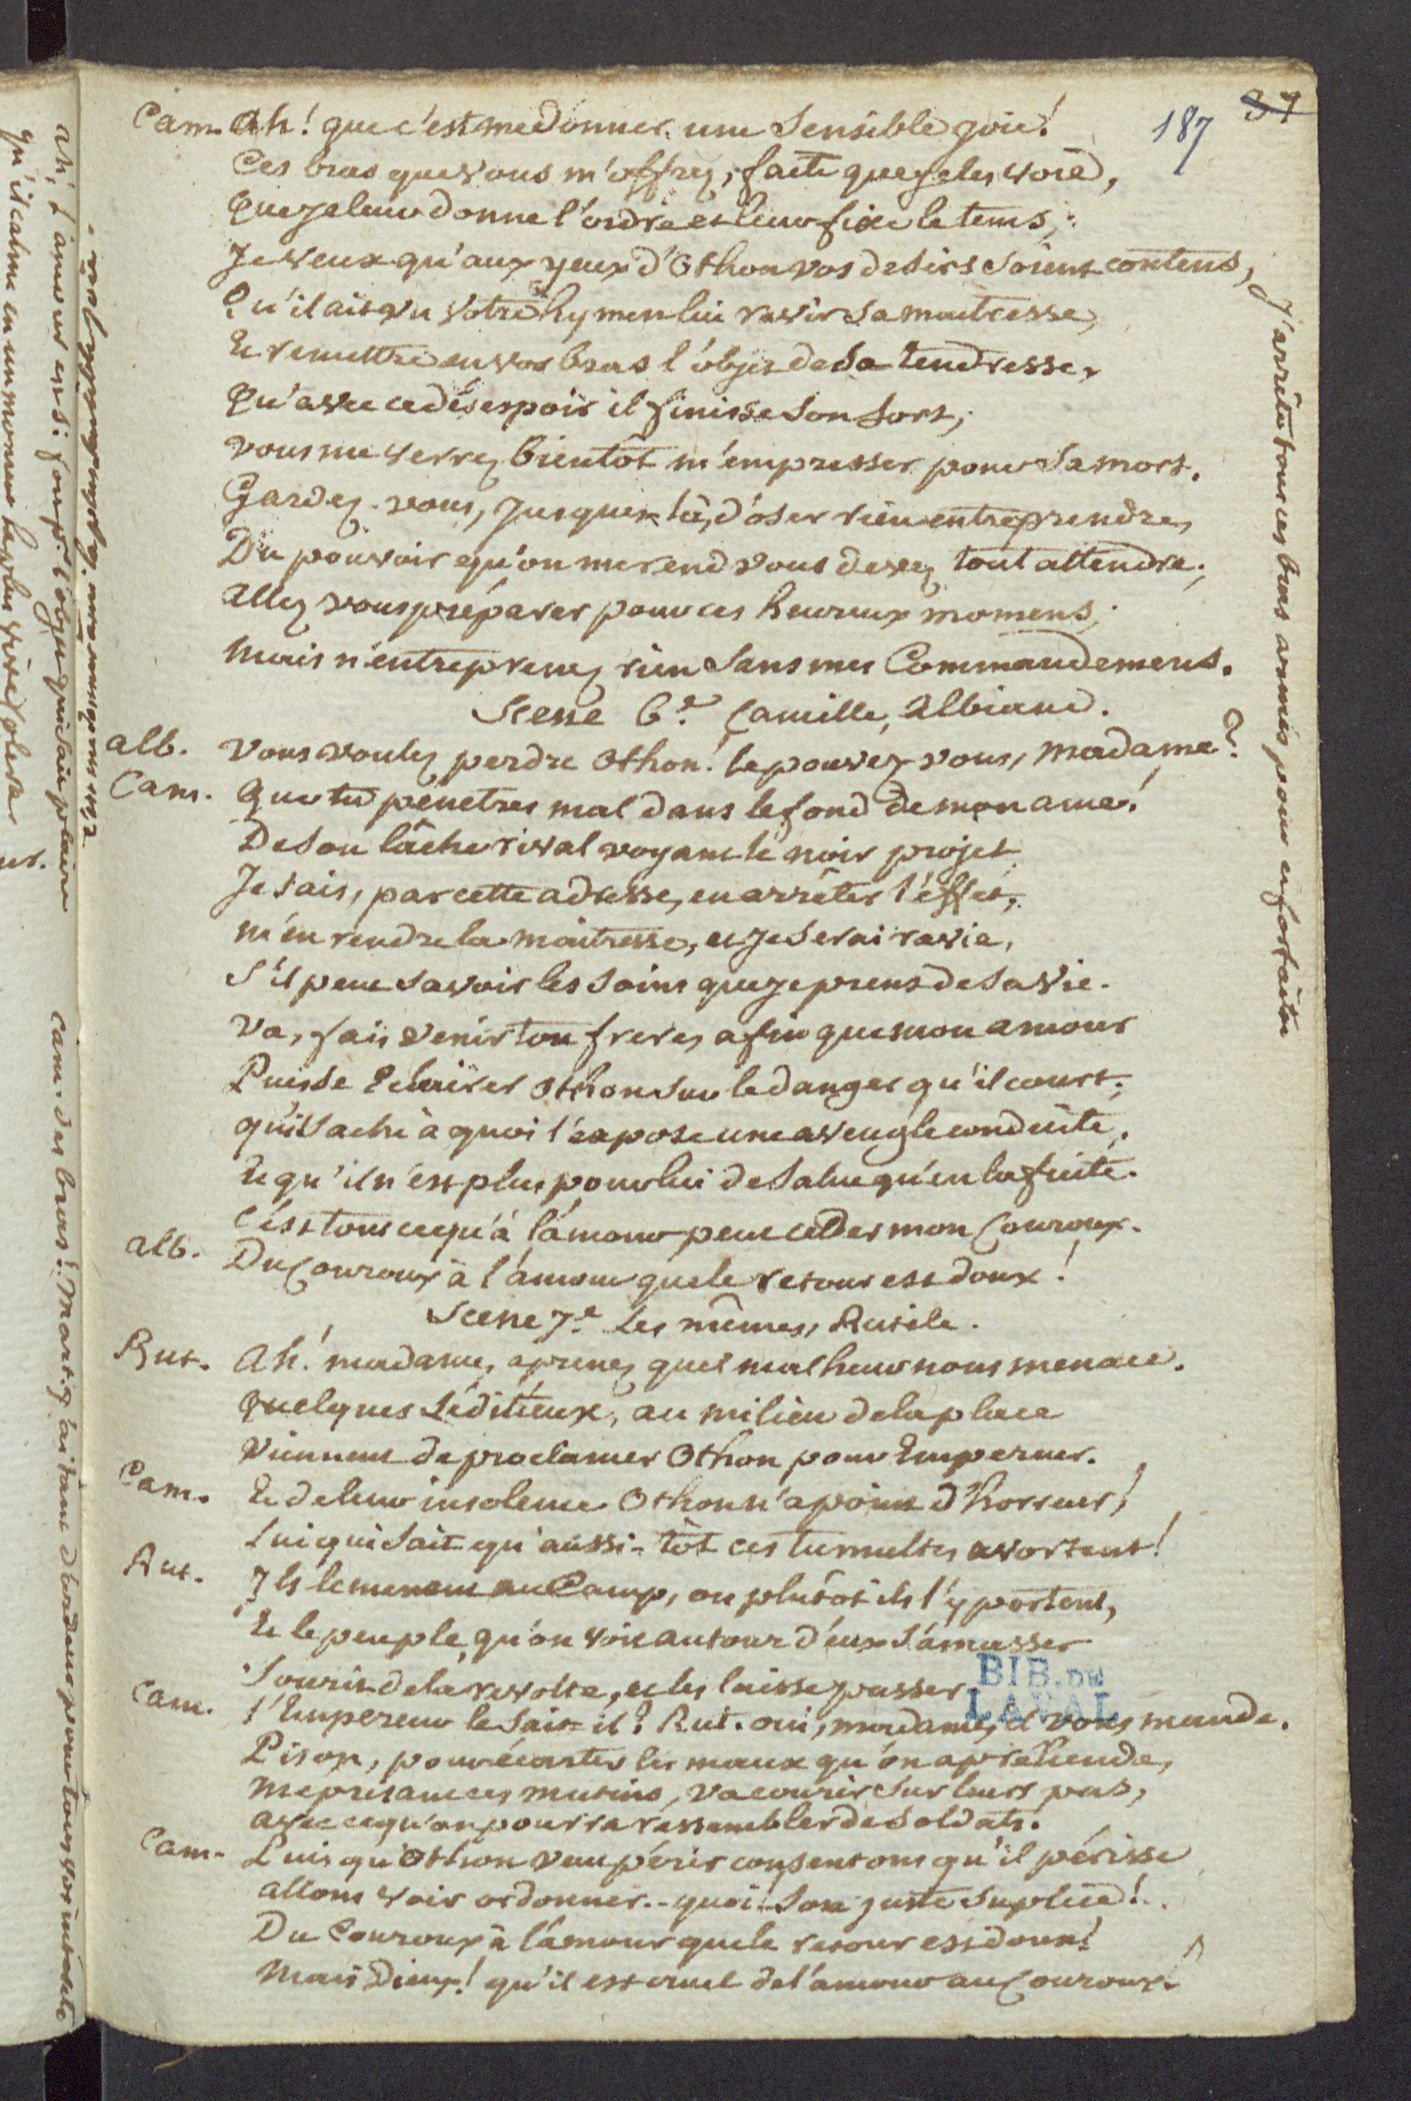 187
37
Cam. Ah! que c'est me donner une sensible joie!
Ces bras que vous m'offrez, faite que je les voie,
Que je leur donne l'ordre et leur fixe le tems;
Je veux qu'aux yeux d'Othon vos desirs soient contens,
Qu'il ait vu votre hymen lui ravir sa maitresse,
Et remettre en vos bras l'objet de sa tendresse,
Qu'avec ce désespoir il finisse son sort;
vous me verrez bientôt m'empresser pour sa mort.
Gardez-vous, jusques là, d'oser rien entreprendre,
Du pouvoir qu'on me rend vous devez tout attendre;
allez vous préparer pour ces heureux momens;
Mais n'entreprenez rien sans mes Commandemens.
Scene 6.e Camille, Albiane.
alb. Vous voulez perdre Othon! le pouvez vous, Madame?
Cam. Que tu pénetres mal dans le fond de mon ame!
De son lâche rival voyant le noir projet
Je sais, par cette adresse, en arrêter l'effet,
m'en rendre la maitresse, et je serai ravie,
S'il peut savoir les soins que je prens de sa vie.
Va, fais venir ton frere, afin que mon amour
Puisse Eclairer Othon sur le danger qu'il court;
qu'il sache à quoi l'expose une aveugle conduite,
Et qu'il n'est plus pour lui de salut qu'en la fuite.
C'est tout ce qu'à l'amour peut ceder mon Couroux.
alb. Du Couroux à l'amour que le retour est doux!
Scene 7.e Les mêmes, Rutile.
Rut. Ah! madame, aprenez quel malheur nous menace.
Quelques séditieux, au milieu de la place
Viennent de proclamer Othon pour Empereur.
Cam. Et de leur insolence Othon n'a point d'horreur,
Lui qui sait qu'aussi-tôt ces tumultes avortent!
Rut. Ils le menent au Camp, ou plutôt ils l'y portent,
Et le peuple, qu'on voit autour d'eux s'amasser
Sourit de la revolte, et les laisse passer
BIB. DE
LAVAL
Cam. l'Empereur le sait-il? Rut. oui, madame, il vous mande.
Pison, pour écarter les maux qu'on apréhende,
Meprisant ces mutins, va courir sur leurs pas,
avec ce qu'on pourra rassembler de soldats.
Cam. Puis qu'Othon veut périr consentons qu'il périsse
allons voir ordonner.. quoi! son juste suplice!
Du Couroux à l'amour que le retour est doux!
Mais Dieux! qu'il est cruel de l'amour au Couroux.
J'arrête tous ces bras armés pour
Cam. des bras!
Ah!
qu'il calme en un moment